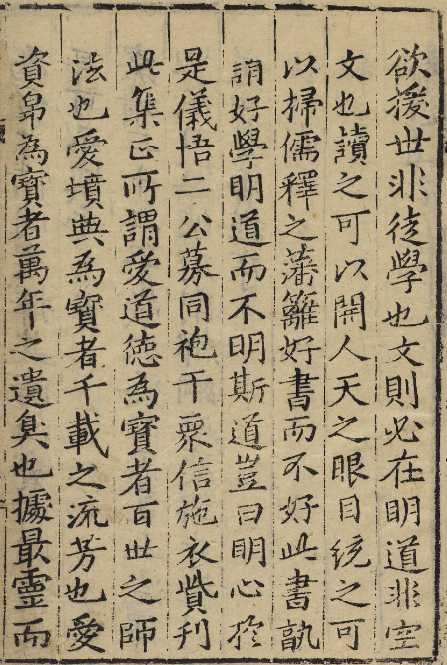 欲後世非徒學也文則必在明道非空
文也讀之可以開人天之眼目統之可
以掃儒釋之藩籬好書而不好此書孰
謂好學明道而不明斯道豈曰明心於
是儀悟二公募同袍干眾信施衣貲刊
此集正所謂愛道德為寶者百世之師
法也愛墳典為寶者千載之流芳也愛
資帛為寳者萬年之遺臭也據最靈而